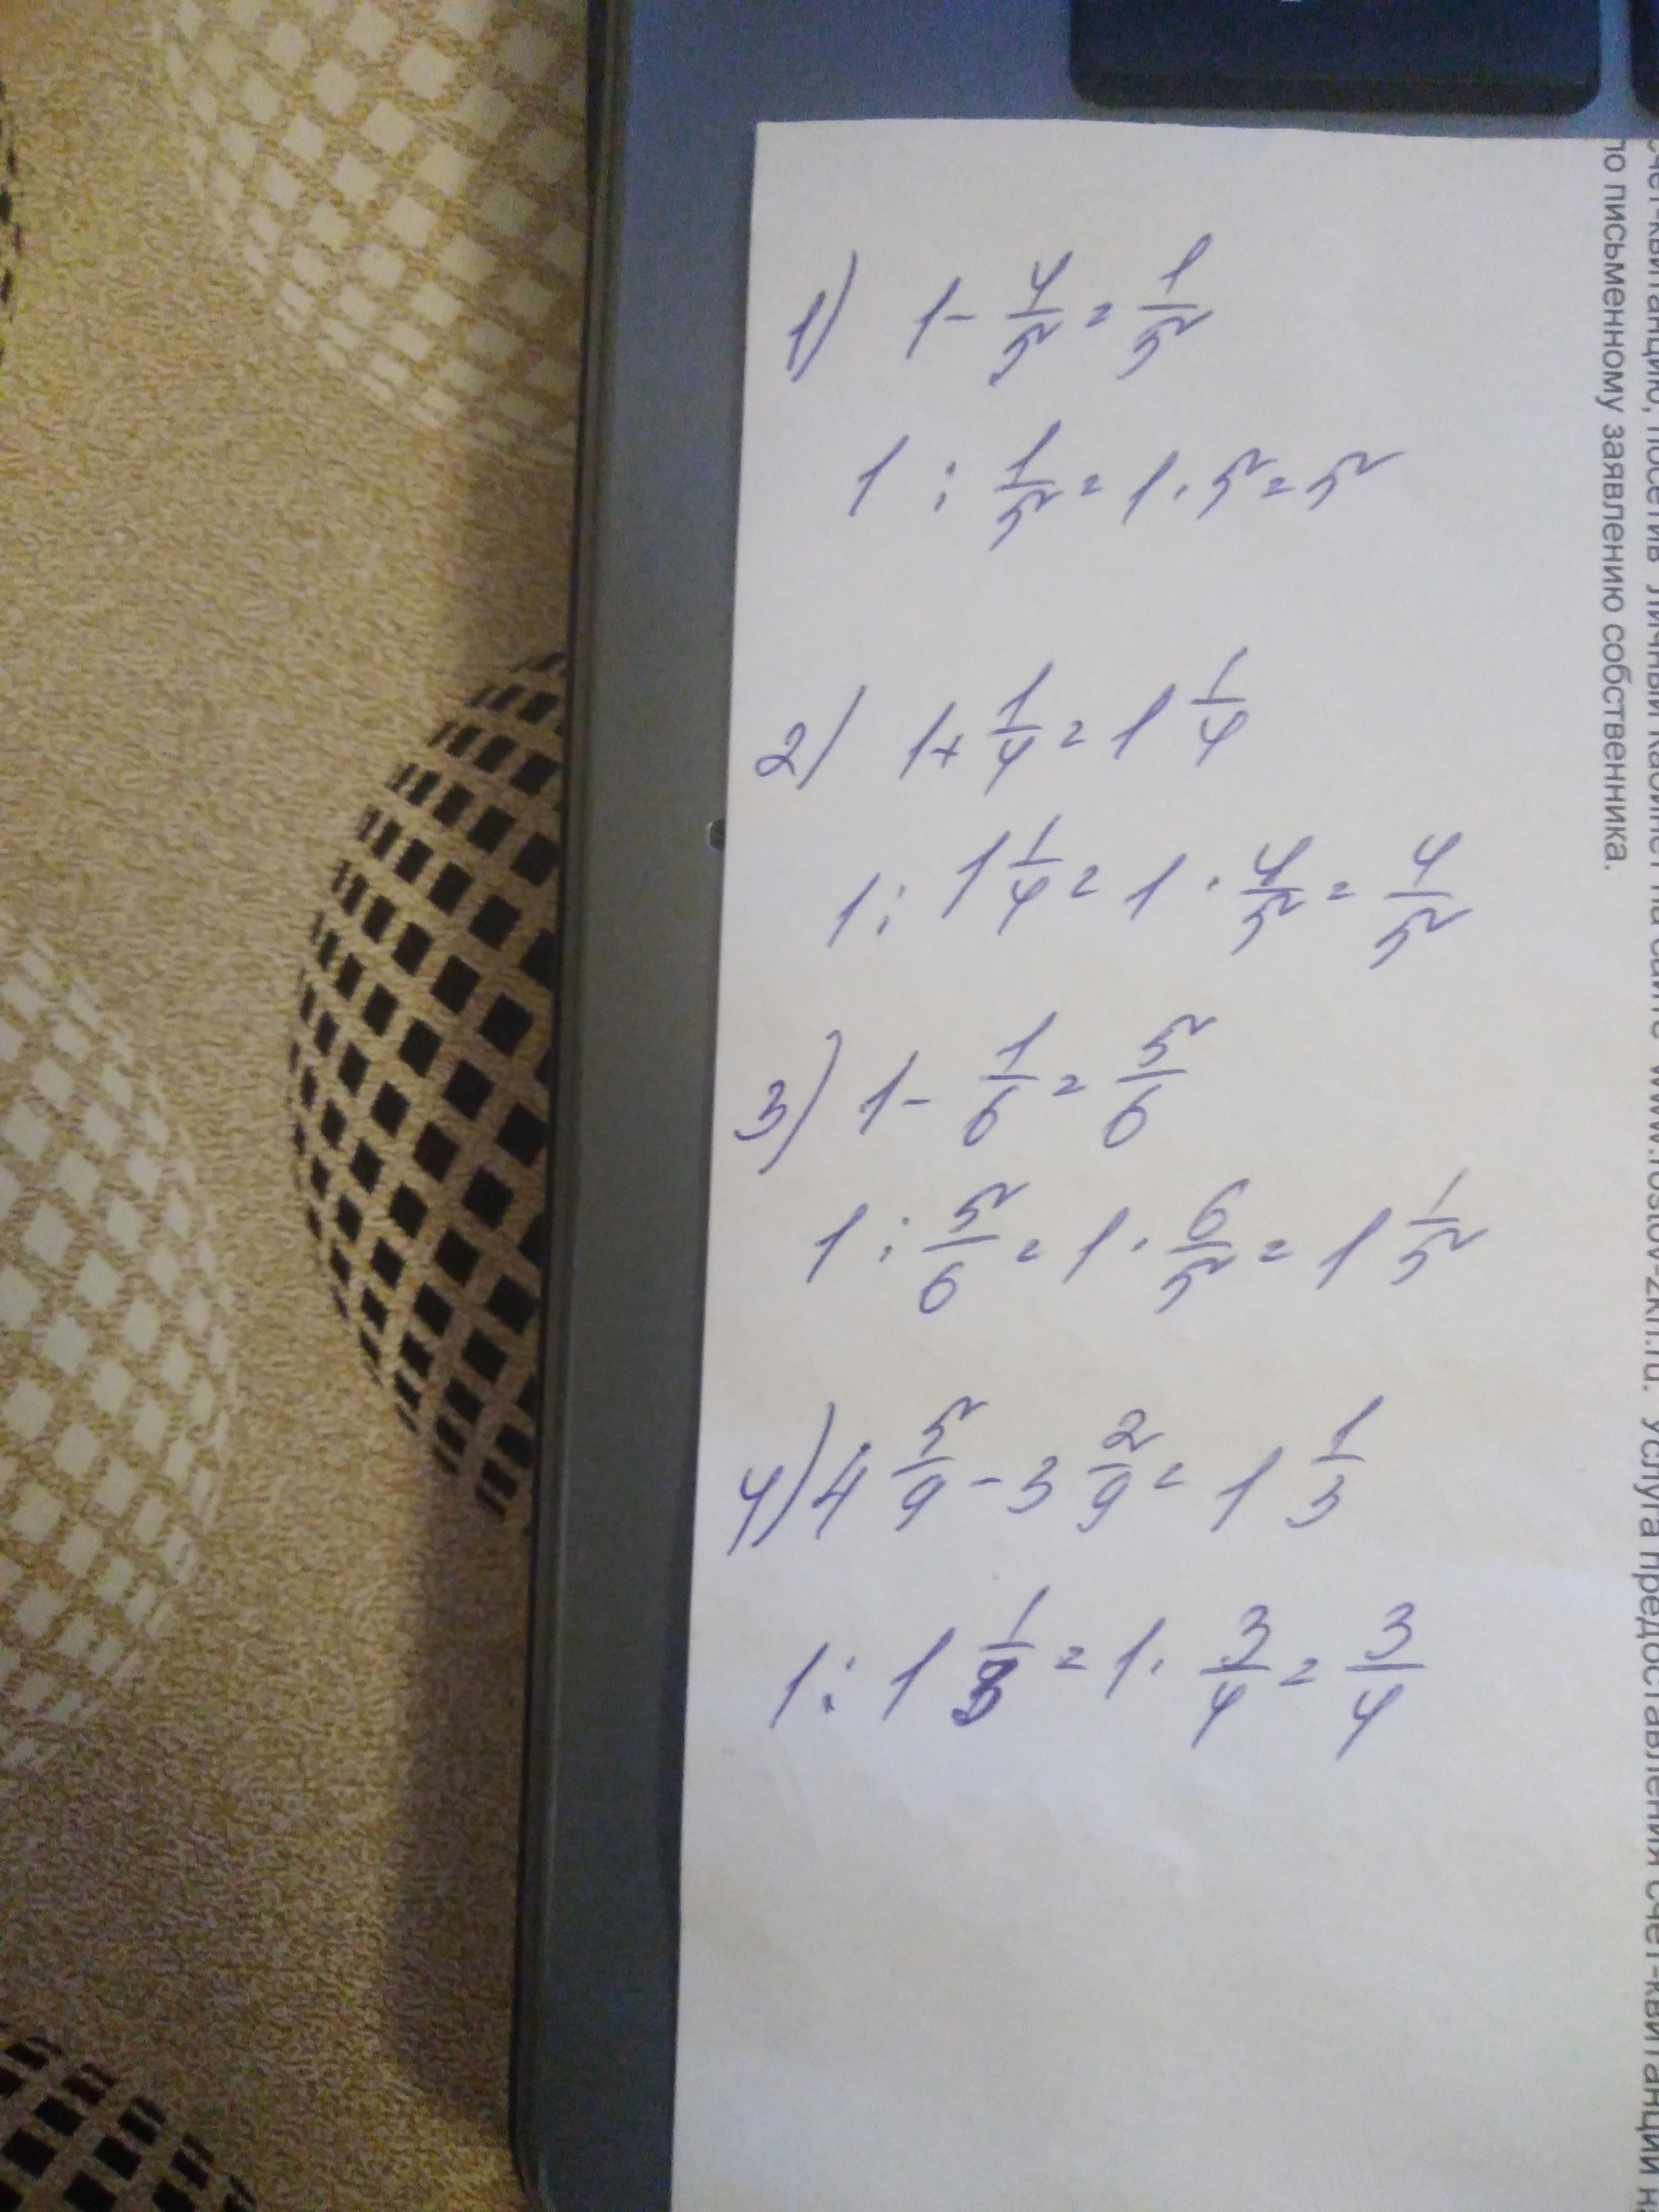 1) 1 - 4/5 = 1/5
1 : 1/5 = 1 · 5 = 5
2) 1 + 1/4 = 1 1/4
1 : 1 1/4 = 1 · 4/5 = 4/5
3) 1 - 1/6 = 5/6
1 : 5/6 = 1 · 6/5 = 1 1/5
4) 4 5/9 - 3 2/9 = 1 1/3
1 : 1 1/3 = 1 · 3/4 = 3/4
счет-квитанцию, посетив личный кабинет на сайте www.rostov-zkh.ru. Услуга предоставления счет-квитанции
по письменному заявлению собственника.